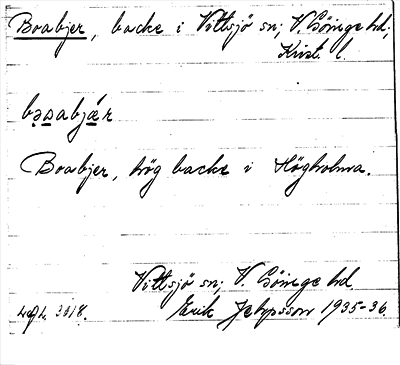 Boabjer, backe i Vittsjö sn; V. Göinge hd;
Krist. l.
Boabjer, hög backe i Högholma.
Vittsjö sn; V. Göinge hd.
Erik Jeppsson 1935-36.